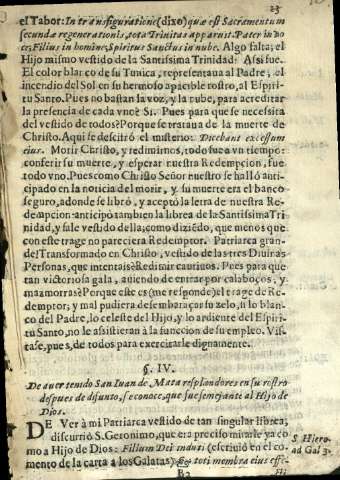 23
el Tabor: In transfiguratione (dixo) quæ est Sacramentum
secundæ regenerationis, tota Trinitas apparuit: Pater in vo
ce, Filius in homine, Spiritus Sanctus in nube. Algo falta; el
Hijo mismo vestido de la Santissima Trinidad: Assi fue.
El color blanco de su Tunica, representaua al Padre, el
incendio del Sol en su hermoso apacible rostro, al Espiri-
tu Santo. Pues no bastan la voz, y la nube, para acreditar
la presencia de cada vno? Si. Pues para que se necessita
del vestido de todos? Porque se trataua de la muerte de
Christo. Aqui se descifrò el misterio: Dicebant excessum
eius. Morir Christo, y redimirnos, todo fue a vn tiempo:
conferir su muerte, y esperar nuestra Redempcion, fue
todo vno. Pues como Christo Señor nuestro se hallò anti-
cipado en la noticia del morir, y su muerte era el banco
seguro, adonde se librò, y aceptò la letra de nuestra Re-
dempcion: anticipò tambien la librea de la Santissima Tri
nidad, y sale vestido della; como diziẽdo, que menos que
con este trage no pareciera Redemptor. Patriarca gran-
de! Transformado en Christo, vestido de las tres Diuinas
Personas, que intentais? Redimir cautiuos. Pues para que
tan victoriosa gala, auiendo de entrar por calaboços, y
mazmorras? Porque este es (me responde) el trage de Re-
demptor; y mal pudiera desembaraçar su zelo, si lo blan-
co del Padre, lo celeste del Hijo, y lo ardiente del Espiri-
tu Santo, no le assistieran à la funccion de su empleo. Vis-
tase, pues, de todos para exercitarle dignamente.
§. IV.
De auer tenido San Iuan de Mata resplandores en su rostro
despues de difunto, se conoce, que fue semejante al Hijo de
Dios.
DE Ver à mi Patriarca vestido de tan singular librea,
discurriò S. Geronimo, que era preciso mirarle ya co
mo a Hijo de Dios: Filium Dei induti (escriuiò en el co-
mento de la carta a los Galatas) & toti membra eius effe-
S. Hiero-
ad Gal 3.
B2